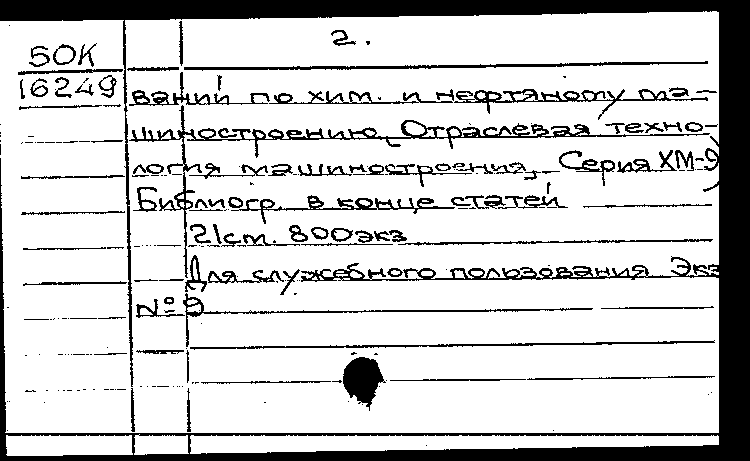 2.
50К
16249
ваний по хим. и нефтяному ма-
шиностроению, Отраслевая техно-
логия машиностроения, Серия ХМ-9)
Библиогр. в конце статей
21см. 800экз
Для служебного пользования Экз
№9